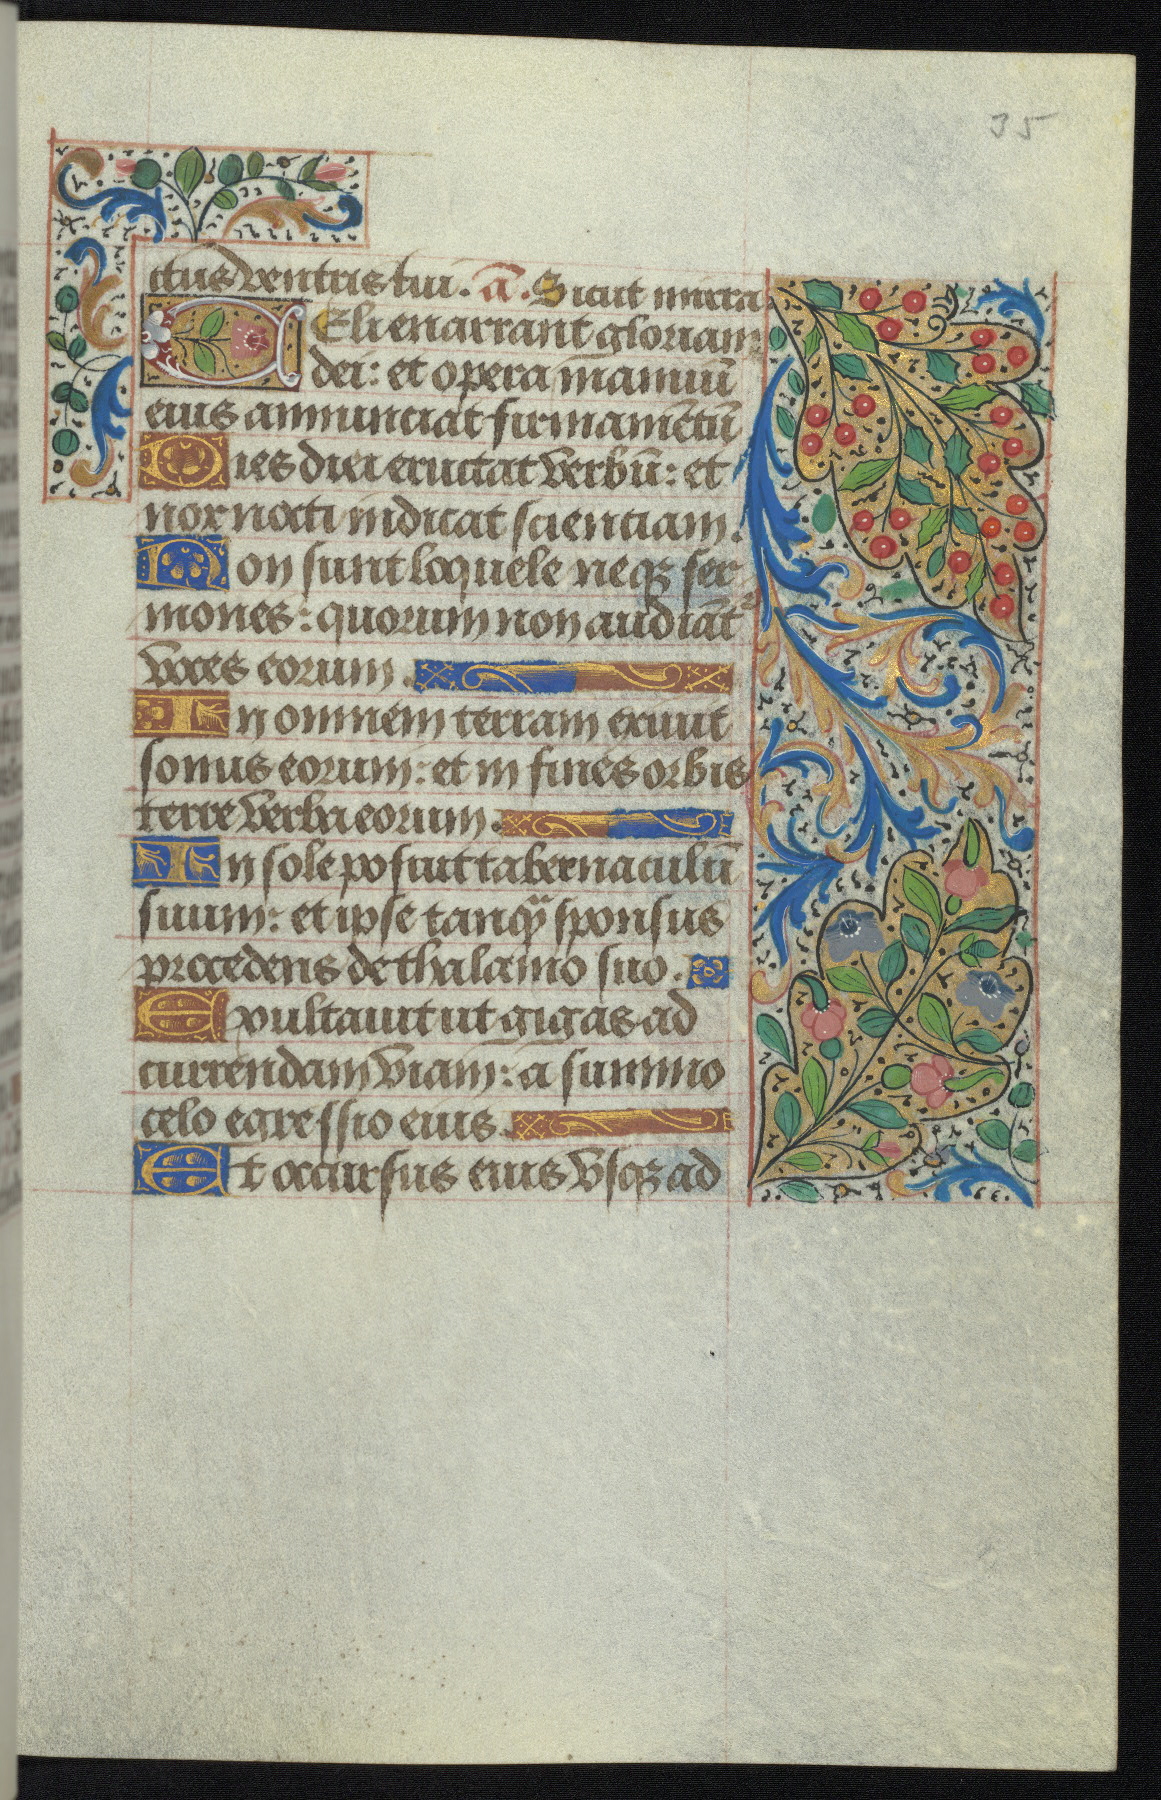 35
ctus ventris tui. a̅. Sicut mirra
Celi enarrant gloriam
dei: et opera manuu̅
eius annunciat firmame̅tu̅
Dies diei eructat verbu̅: et
nox nocti indicat scientiam.
Non sunt loquele neqȝ ser
mones: quorum non audia̅tᷣ
voces eorum.
In omnem terram exiuit
sonus eorum: et in fines orbis
terre verba eorum.
In sole posuit tabernaculu̅
suum: et ipse tanq̅ sponsus
procedens de thalamo suo.
Exultauit ut gigas ad
currendam viam: a summo
celo egressio eius.
Et occursus eius vsqȝ ad